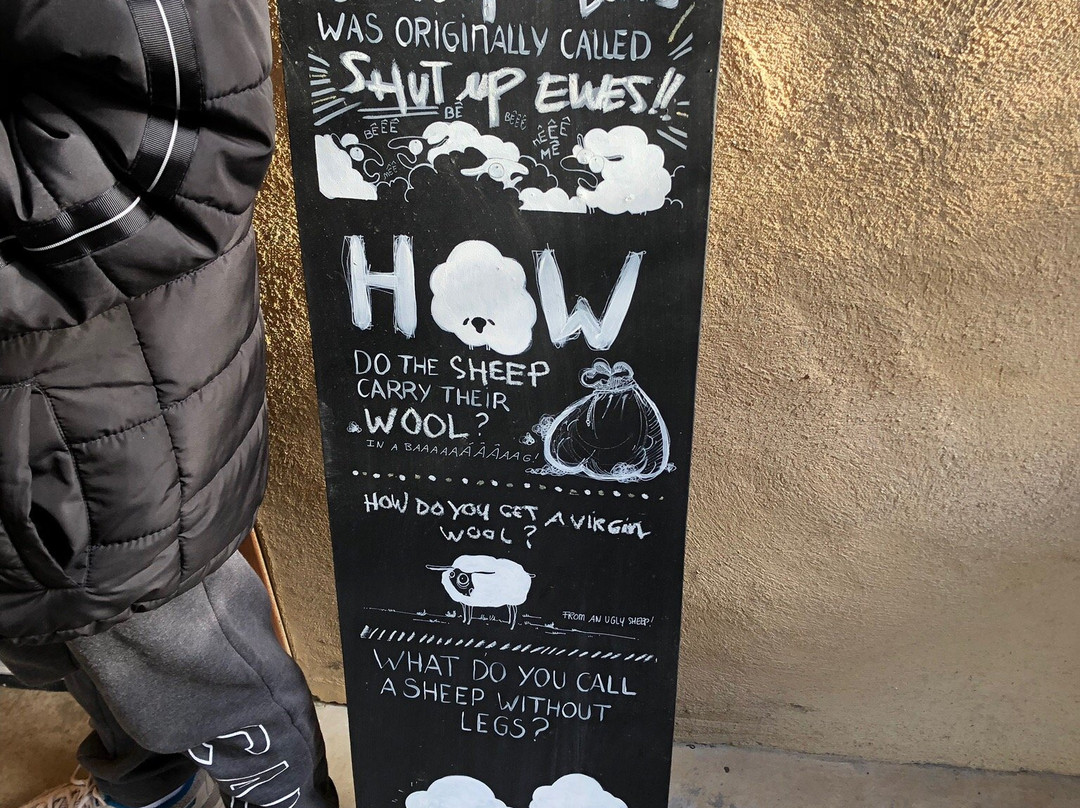 WAS ORIGINALLY CALLED
SHUT UP EWES!!
BÊ
BÊÊÊ
BÊÊÊ
MÊÊ
HOW
DO THE SHEEP
CARRY THEIR
WOOL?
IN A BAAAAAÁÂÃÄAAG!
HOW DO YOU GET A VIRGIN
WOOL?
FROM AN UGLY SHEEP!
WHAT DO YOU CALL
A SHEEP WITHOUT
LEGS?